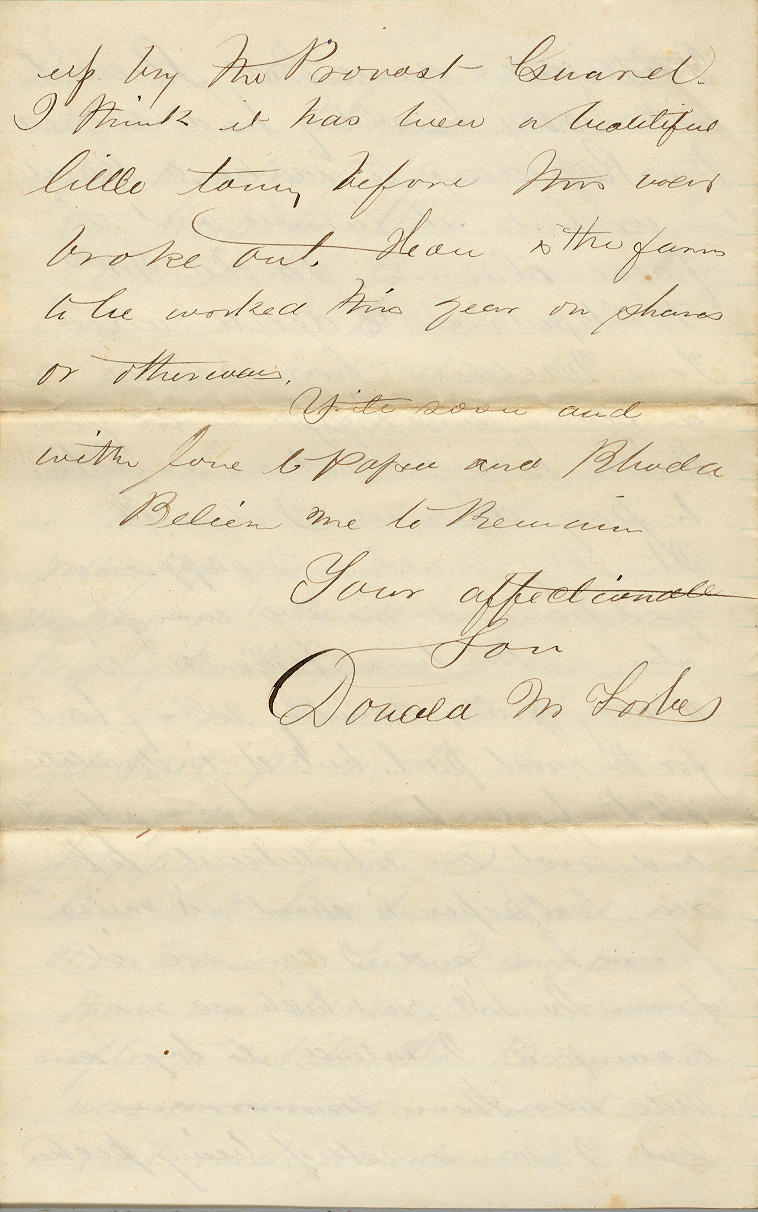 up by the Provost Guard.
I think it has been a beautiful
little town, before this war
broke out. How is the farm
to be worked this year on shares
or otherways.
Write soon and
with love to Papa and Rhoda
Believe me to Remain
Your affectionate
Son
Donald M Forbes